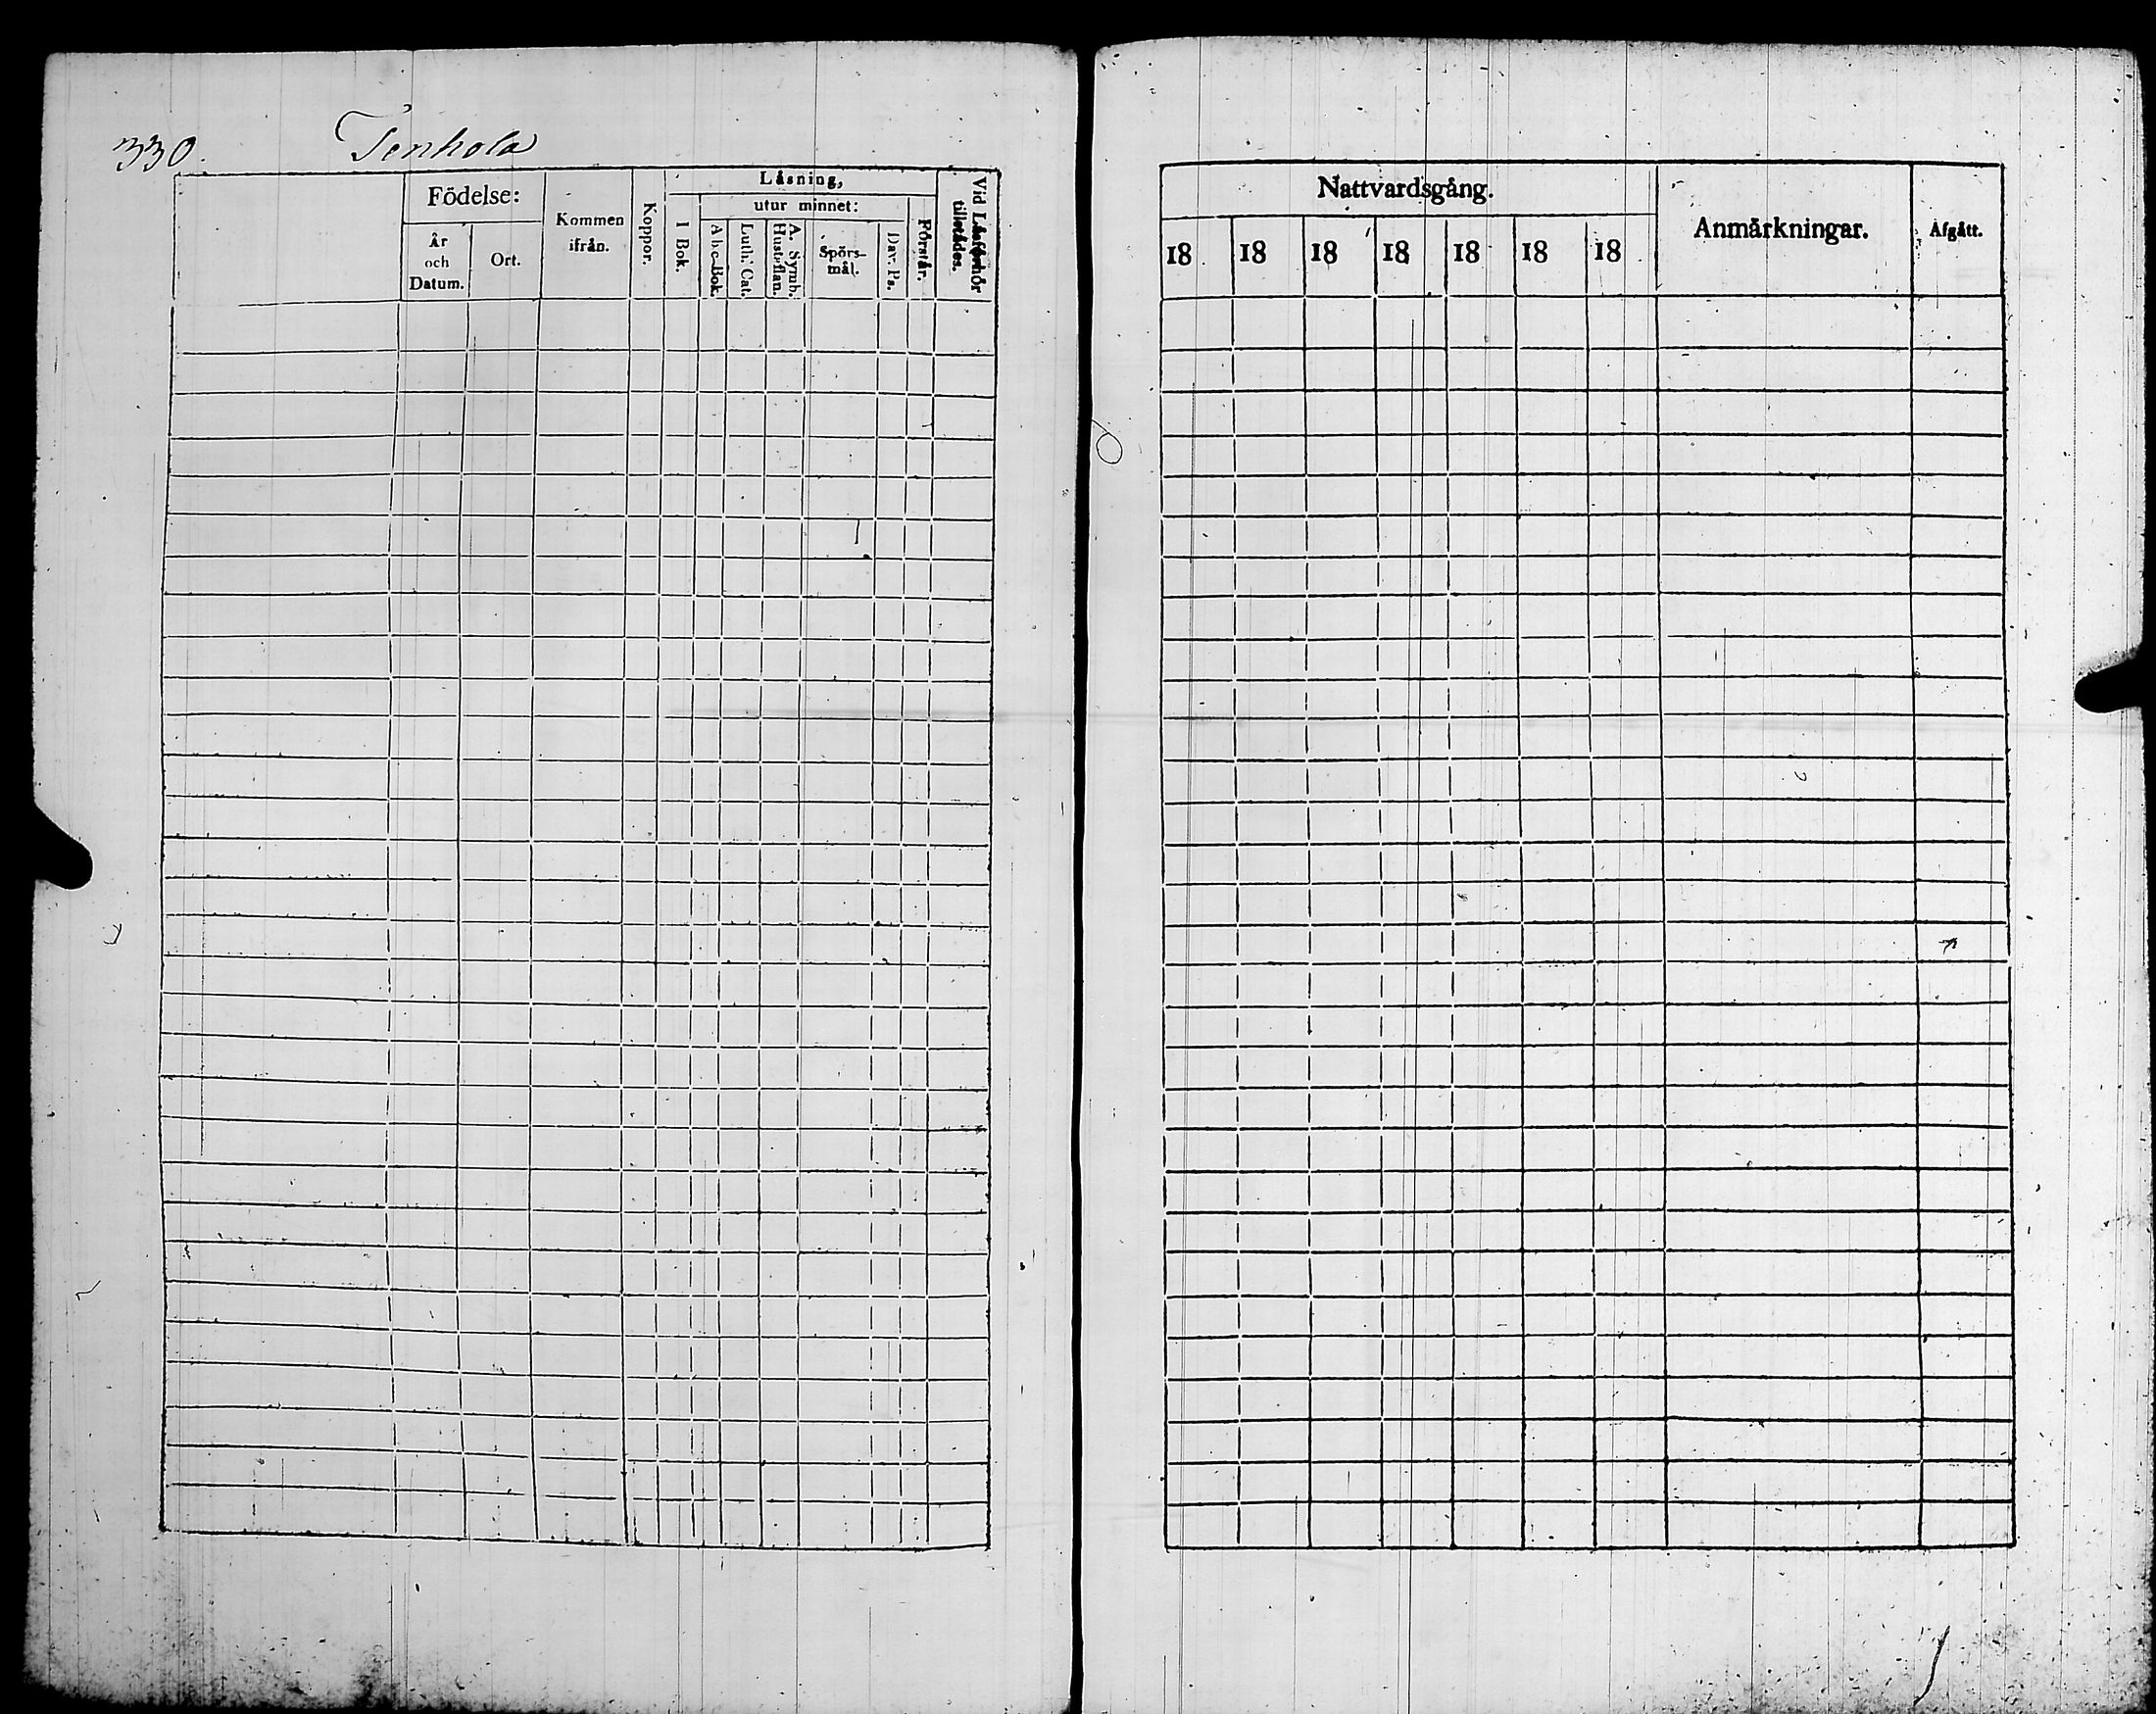 330. Tenhola
Födelse:
År och Datum.
Ort.
Kommen ifrån.
Koppor.
Läsning,
I Bok.
utur minnet:
A b c-Bok.
Luth. Cat.
A. Symb. Hust-flan.
Spörs-mål.
Dav. Ps.
Förstår.
Vid Läsförhör tillstädes.
Nattvardsgång.
18 18 18 18 18 18 18
Anmärkningar.
Afgått.